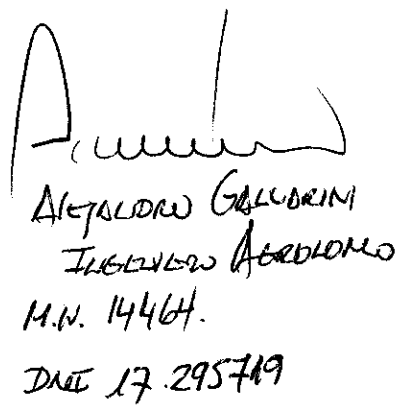 Alejandro Gallardini
Ingeniero Agronomo
M.N. 14464.
DNI 17.295719